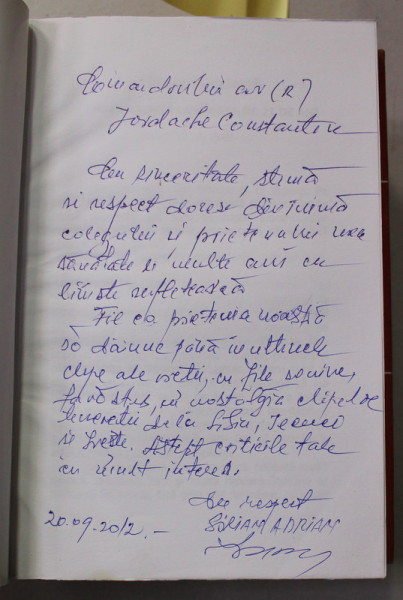 Comandorului av (R)
Iordache Constantin
Cu sinceritate, stimă
și respect doresc din inimă
colegului și prietenului meu
sănătate și mulți ani cu
liniște sufletească
Fie ca prietenia noastră
să dăinuie până în ultimele
clipe ale vieții, cu zile senine,
fără, cu nostalgia clipelor
tinereții de la Sibiu,
și. Aștept criticile tale
cu mult interes.
Cu respect
20.09.2012.-
ADRIAN